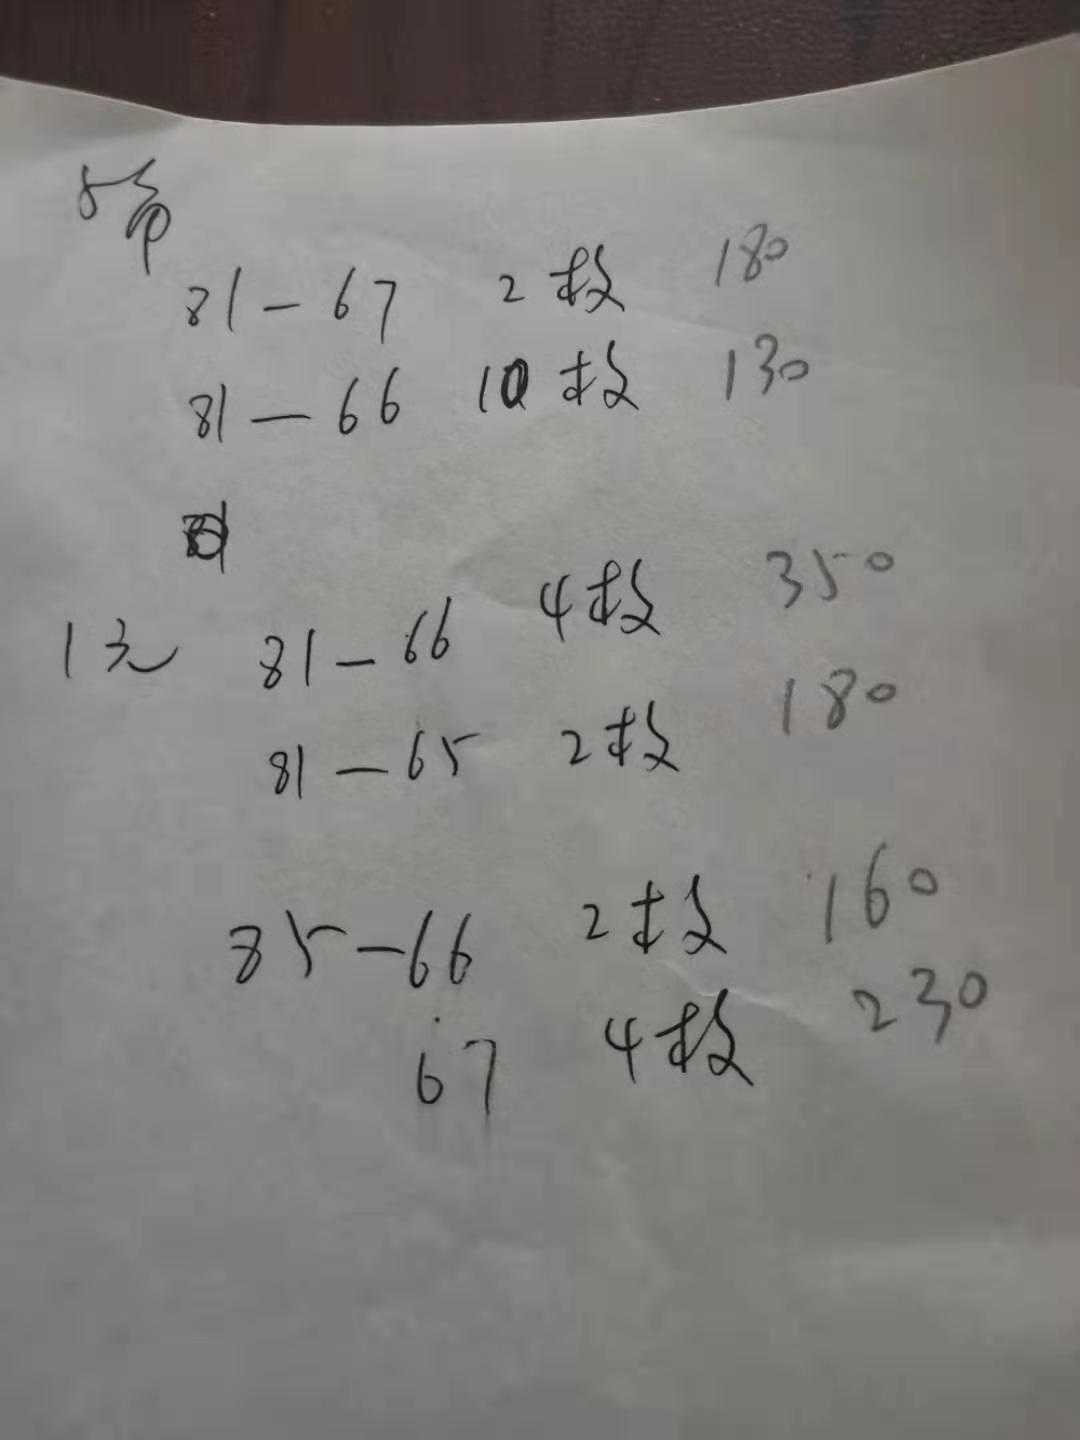 5角
81-67 2枚 180
81-66 10枚 130
1元 81-66 4枚 350
81-65 2枚 180
85-66 2枚 160
67 4枚 230